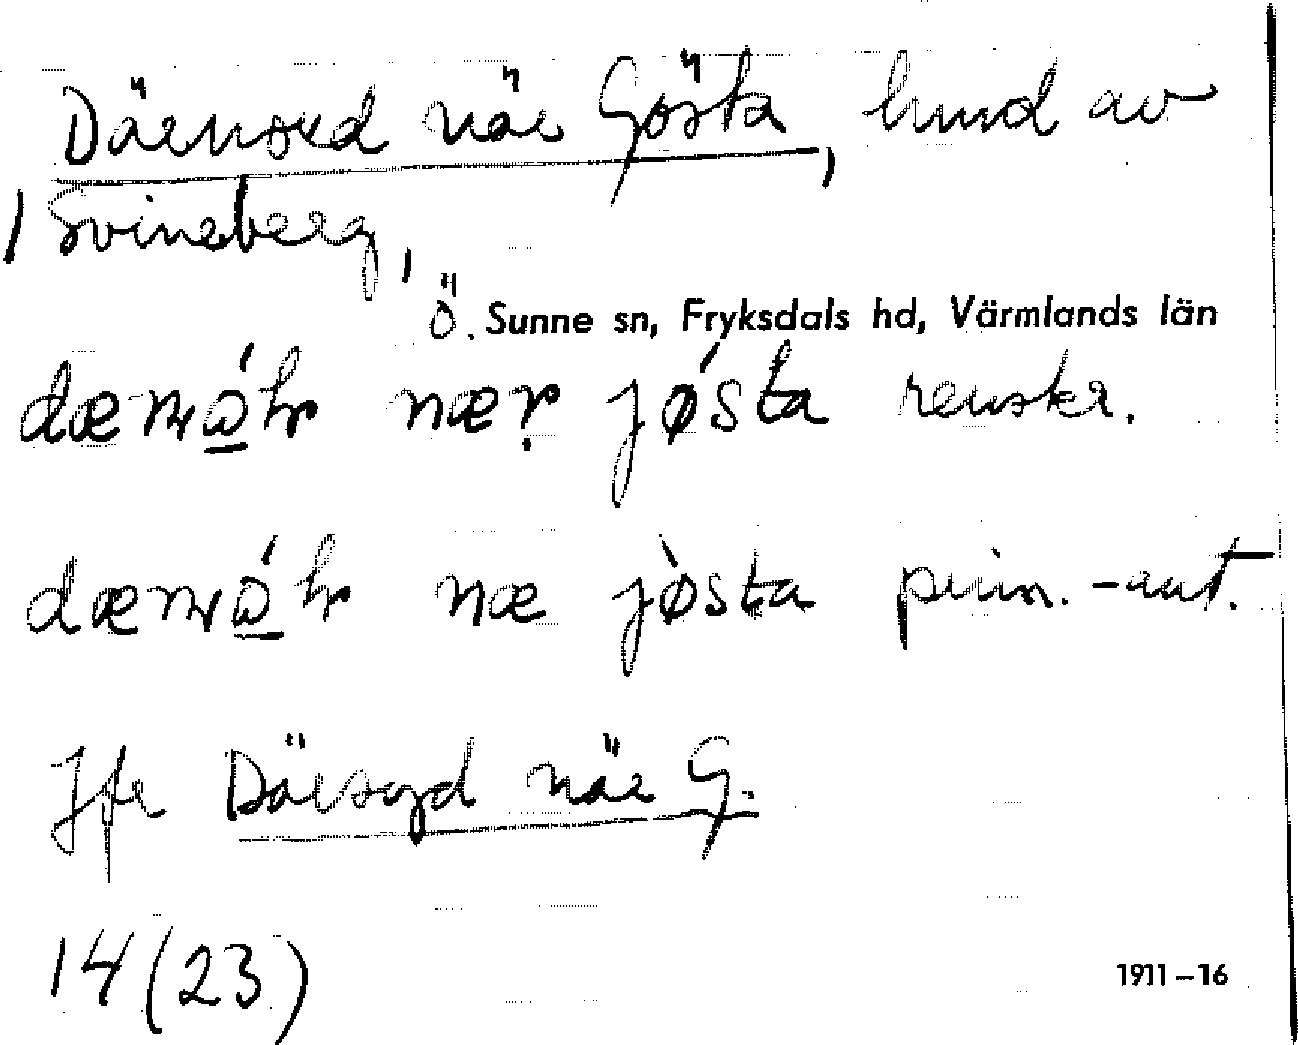 Därnord när Gösta, lund av
Svineberg,
Ö. Sunne sn, Fryksdals hd, Värmlands län
när jøsta renskr.
næ jøsta prim. -ant.
Jfr Därsyd när G.
14 (23)
1911–16